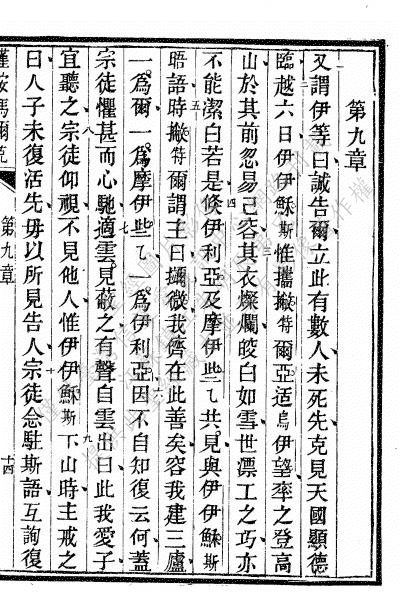 第九章
又謂伊等曰誠告爾立此有數人未死先克見天國顯德
臨越六日伊伊穌斯惟攜撇特爾亞适烏伊望率之登高
山於其前忽易己容其衣燦爛皎白如雪世漂工之巧亦
不能潔白若是倏伊利亞及摩伊些乀共見與伊伊穌斯
晤語時撇特爾謂主曰微我儕在此善矣容我建三廬
一爲爾一爲摩伊些乀一爲伊利亞因不自知復云何蓋
宗徒懼甚而心馳適雲見蔽之有聲自雲出曰此我愛子
宜聽之宗徒仰視不見他人惟伊伊穌斯下山時主戒之
曰人子未復活先毋以所見告人宗徒念駐斯語互詢復
馬爾克
第九章
十四